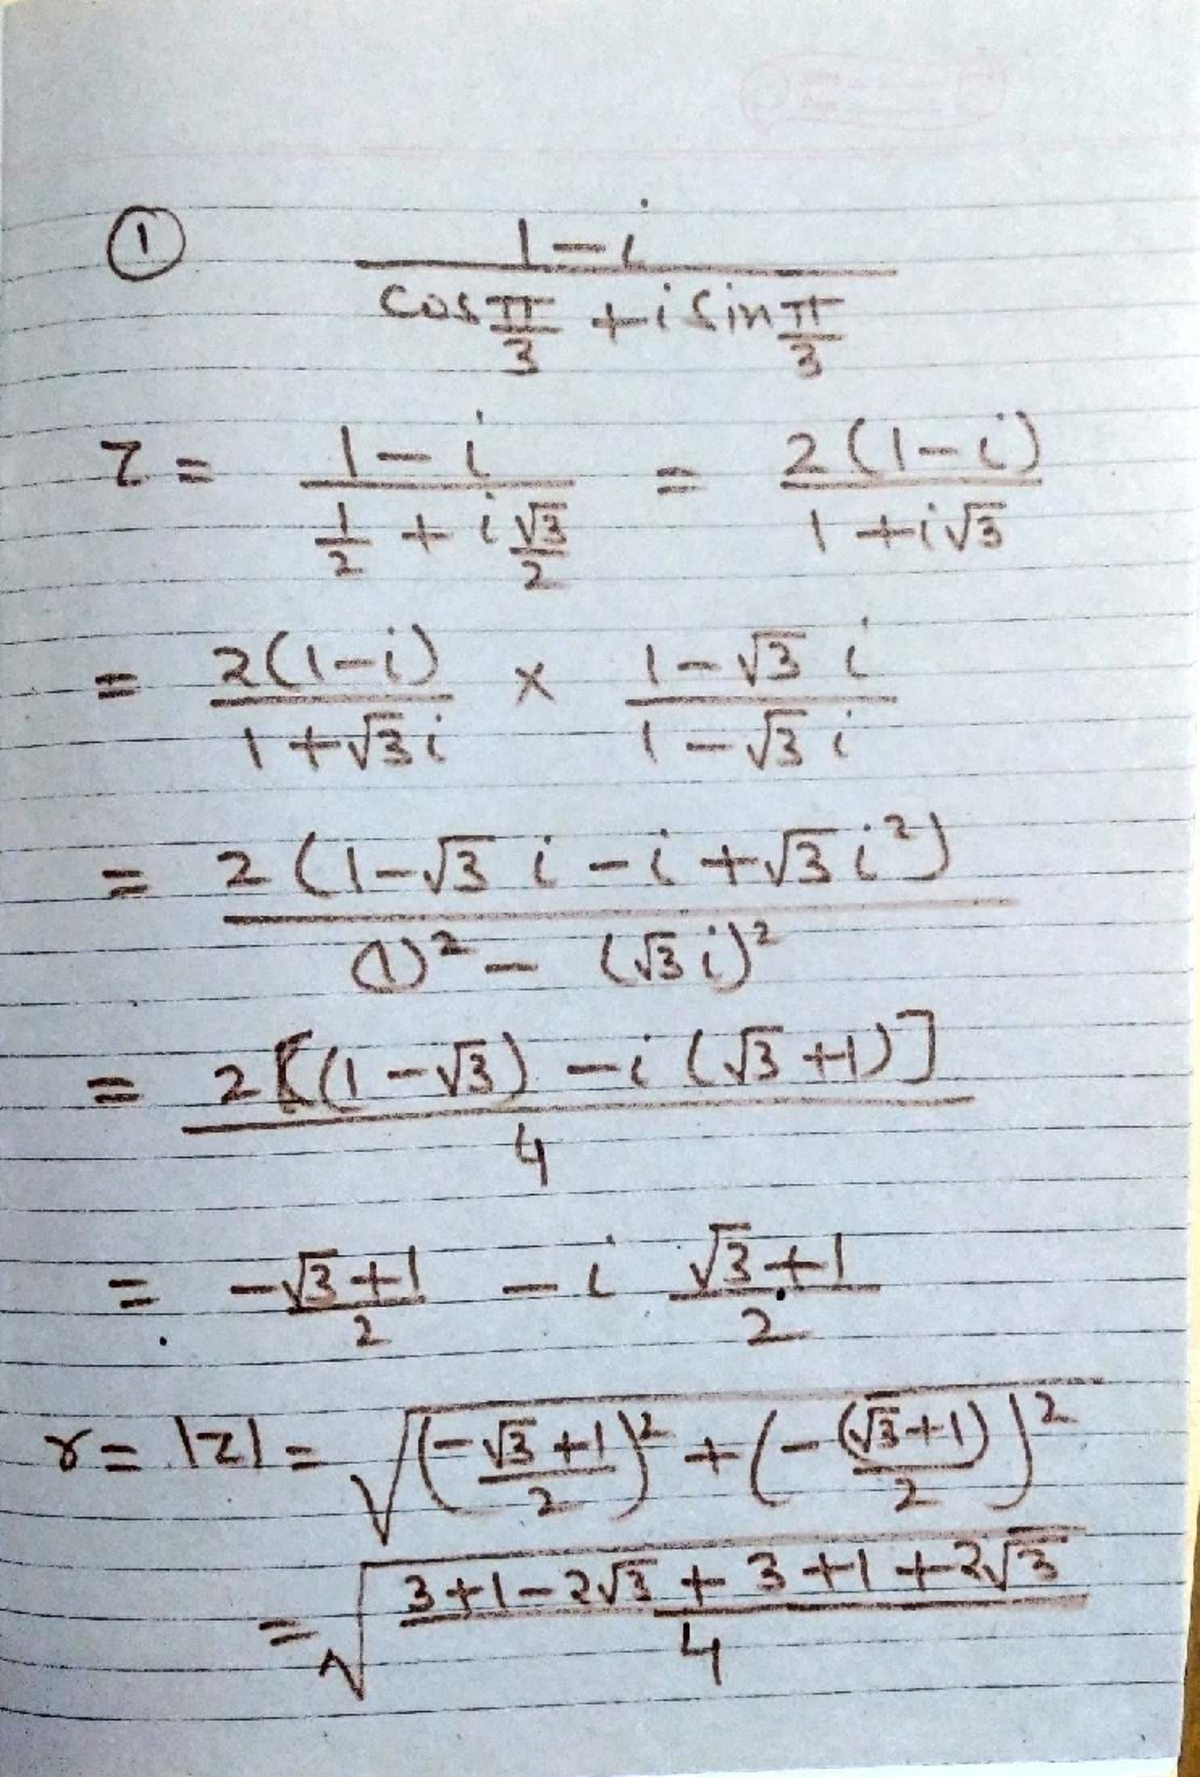 ① (1 - i) / (cos π/3 + i sin π/3)
z = (1 - i) / (1/2 + i √3/2) = 2(1-i) / (1 + i√3)
= 2(1-i) / (1 + √3 i) × (1 - √3 i) / (1 - √3 i)
= 2 (1 - √3 i - i + √3 i²) / ((1)² - (√3 i)²)
= 2 [(1 - √3) - i (√3 + 1)] / 4
= (-√3 + 1) / 2 - i (√3 + 1) / 2
r = |z| = √(((-√3 + 1) / 2)² + (-(√3 + 1) / 2)²)
= √((3 + 1 - 2√3 + 3 + 1 + 2√3) / 4)